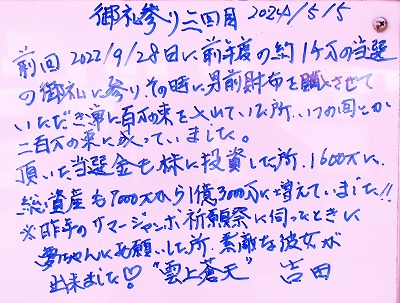 御礼参り三回目 2024/5/5
前回2022/9/28日に前年度の約1千万の当選
の御礼に参りその時に男前財布を購させて
いただき常に百万の束を入れていた所、いつの間にか
二百万の束に成っていました。
頂いた当選金も株に投資した所、1600万に、
総資産も7000万から1億3000万に増えていました!!
※昨年のサマージャンボ祈願祭に伺ったときに
夢ちゃんにお願いした所、素敵な彼女が
出来ました♡ "雲上蒼天" 吉田